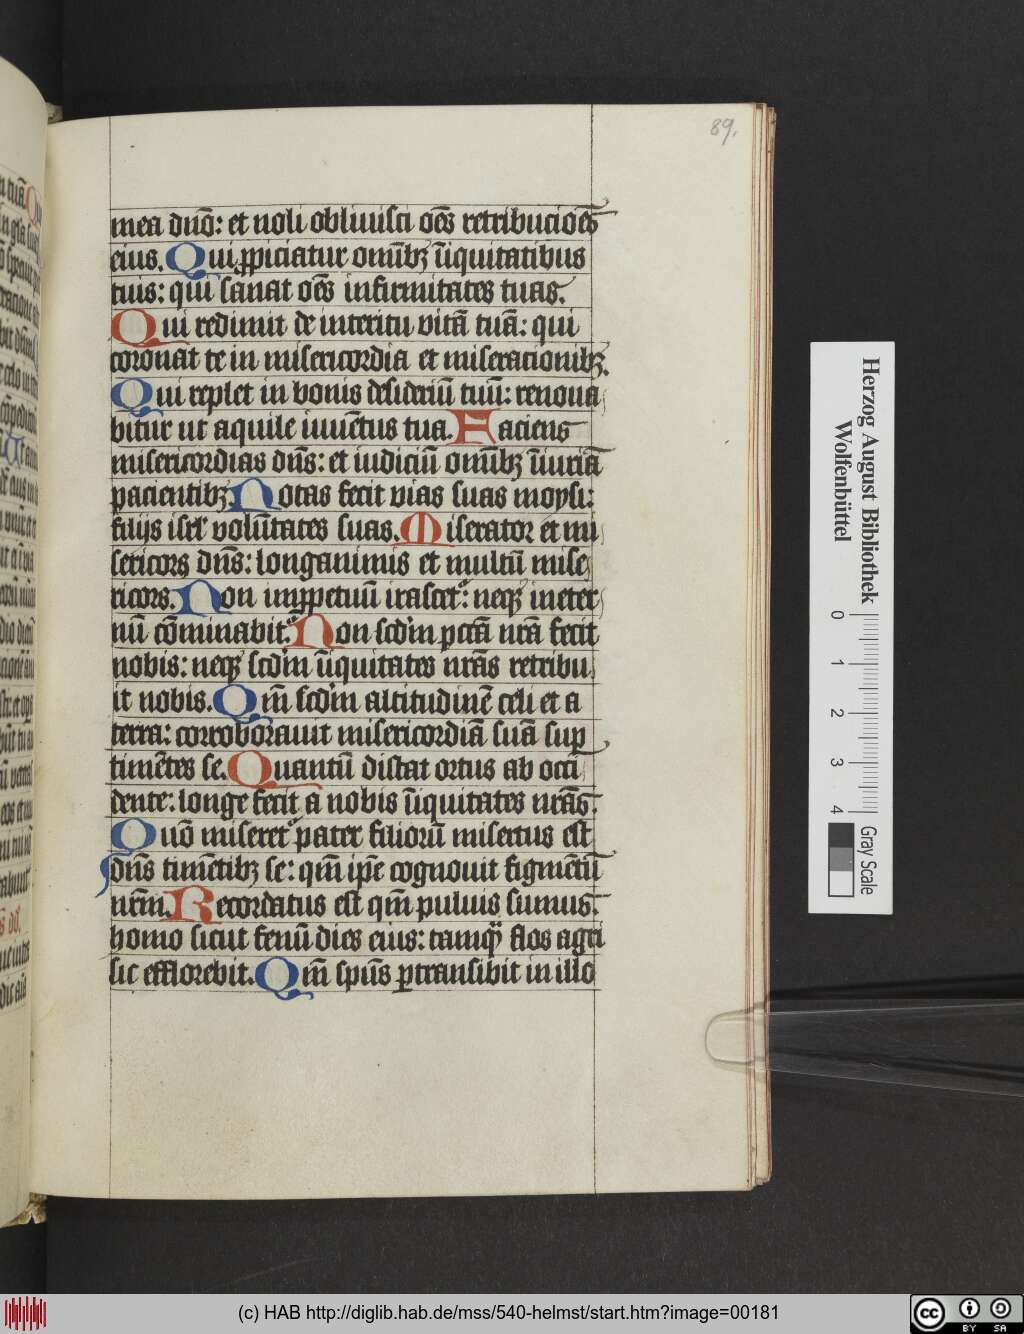 89.
mea dnō: et noli obliuisci oēs retribucioēs
eius. Qui ꝓpiciatur omībꝫ īiquitatibus
tuis: qui sanat oēs infirmitates tuas.
Qui redimit de interitu vitā tuā: qui
coronat te in misericordia et miseracionibꝫ.
Qui replet in bonis desideriū tuū: renoua
bitur ut aquile iuuētus tua. Faciens
misericordias dn̄s: et iudiciū omībꝫ īiuriā
pacientibꝫ. Notas fecit vias suas moysi:
filijs isrl' volūtates suas. Miserator et mi
sericors dn̄s: longanimis et multū mise
ricors. Non imꝑpetuū irascet': neqꝫ ineter
nū cōminabit'. Non scd'm pctā nrā fecit
nobis: neqꝫ scd'm īiquitates nrās retribu
it nobis. Qm̄ scd'm altitudinē celi et a
terra: corroborauit misericordiā suā suꝑ
timētes se. Quantū distat ortus ab occi
dente: longe fecit a nobis īiquitates nrās.
Quō miseret' pater filiorū misertus est
dn̄s timētibꝫ se: qm̄ ip̄e cognouit figmētū
nrm̄. Recordatus est qm̄ puluis sumus:
homo sicut fenū dies eius: tamqͣ flos agri
sic efflorebit. Qm̄ spūs ꝑtransibit in illo
Herzog August Bibliothek
Wolfenbüttel
0 1 2 3 4
Gray Scale
(c) HAB http://diglib.hab.de/mss/540-helmst/start.htm?image=00181
cc BY SA